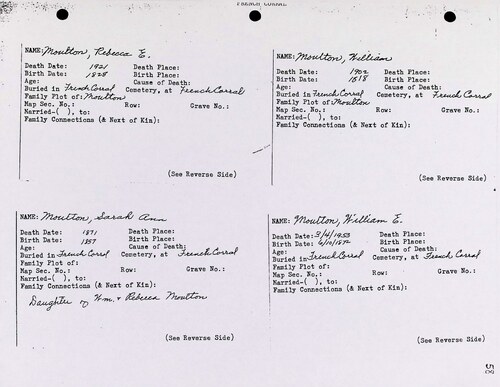 FRENCH CORRAL
NAME: Moulton, Rebecca E.
Death Date: 1921 Death Place:
Birth Date: 1828 Birth Place:
Age: Cause of Death:
Buried in French Corral Cemetery, at French Corral
Family Plot of: Moulton
Map Sec. No.: Row: Grave No.:
Married-( ), to:
Family Connections (& Next of Kin):
(See Reverse Side)
NAME: Moulton, William
Death Date: 1902 Death Place:
Birth Date: 1818 Birth Place:
Age: Cause of Death:
Buried in French Corral Cemetery, at French Corral
Family Plot of: Moulton
Map Sec. No.: Row: Grave No.:
Married-( ), to:
Family Connections (& Next of Kin):
(See Reverse Side)
NAME: Moulton, Sarah Ann
Death Date: 1871 Death Place:
Birth Date: 1857 Birth Place:
Age: Cause of Death:
Buried in French Corral Cemetery, at French Corral
Family Plot of:
Map Sec. No.: Row: Grave No.:
Married-( ), to:
Family Connections (& Next of Kin):
Daughter of Wm. & Rebecca Moulton
(See Reverse Side)
NAME: Moulton, William E.
Death Date: 3/4/1953 Death Place:
Birth Date: Birth Place:
Age: Cause of Death:
Buried in French Corral Cemetery, at French Corral
Family Plot of:
Map Sec. No.: Row: Grave No.:
Married-( ), to:
Family Connections (& Next of Kin):
(See Reverse Side)